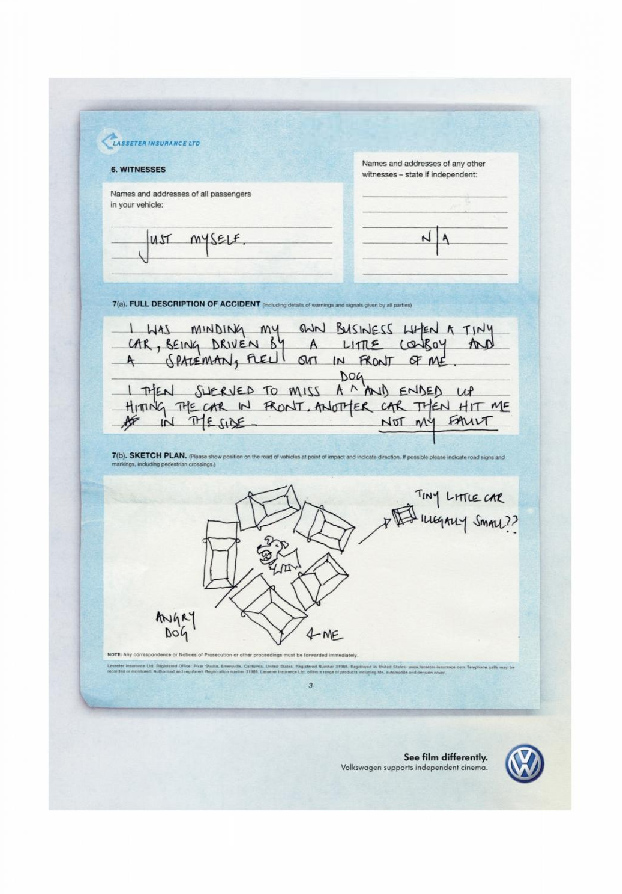 LASSETER INSURANCE LTD
6. WITNESSES
Names and addresses of all passengers
in your vehicle:
JUST MYSELF.
Names and addresses of any other
witnesses – state if independent:
N/A
7(a). FULL DESCRIPTION OF ACCIDENT (Including details of warnings and signals given by all parties)
I WAS MINDING MY OWN BUSINESS WHEN A TINY
CAR, BEING DRIVEN BY A LITTLE COWBOY AND
A SPACEMAN, FLEW OUT IN FRONT OF ME.
DOG
I THEN SWERVED TO MISS A ^ AND ENDED UP
HITTING THE CAR IN FRONT. ANOTHER CAR THEN HIT ME
IN THE SIDE. NOT MY FAULT
7(b). SKETCH PLAN. (Please show position on the road of vehicles at point of impact and indicate direction. If possible please indicate road signs and
markings, including pedestrian crossings.)
TINY LITTLE CAR
ILLEGALLY SMALL??
ANGRY
DOG
ME
NOTE: Any correspondence or Notices of Prosecution or other proceedings must be forwarded immediately.
3
See film differently.
Volkswagen supports independent cinema.